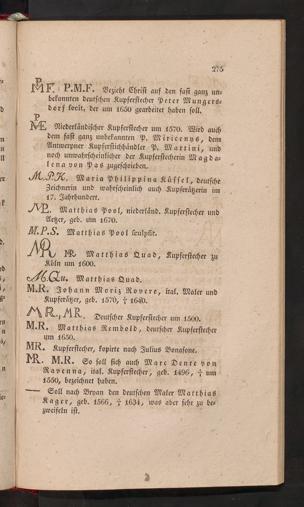 275
P.M.F. Bezieht Christ auf den fast ganz un-
bekannten deutschen Kupferstecher Peter Mungers-
dorf fecit, der um 1650 gearbeitet haben soll.
Niederländischer Kupferstecher um 1570. Wird auch
dem fast ganz unbekannten P. Miricenys, dem
Antwerpner Kupferstichhändler P. Martini, und
noch unwahrscheinlicher der Kupferstecherin Magda-
lena von Pas zugeschrieben.
M.P.K. Maria Philippina Küssel, deutsche
Zeichnerin und wahrscheinlich auch Kupferätzerin im
17. Jahrhundert.
Matthias Pool, niederländ. Kupferstecher und
Aetzer, geb. um 1670.
M.P.S. Matthias Pool sculpsit.
Matthias Quad, Kupferstecher zu
Köln um 1600.
M.Qu. Matthias Quad.
M.R. Johann Moriz Rovere, ital. Maler und
Kupferätzer, geb. 1570, † 1640.
MR., MR. Deutscher Kupferstecher um 1500.
M.R. Matthias Rembold, deutscher Kupferstecher
um 1650.
MR. Kupferstecher, kopirte nach Julius Bonasone.
MR. M.R. So soll sich auch Marc Denre von
Ravenna, ital. Kupferstecher, geb. 1496, † um
1550, bezeichnet haben.
— Soll nach Bryan den deutschen Maler Matthias
Kager, geb. 1566, † 1634, was aber sehr zu be-
zweifeln ist.